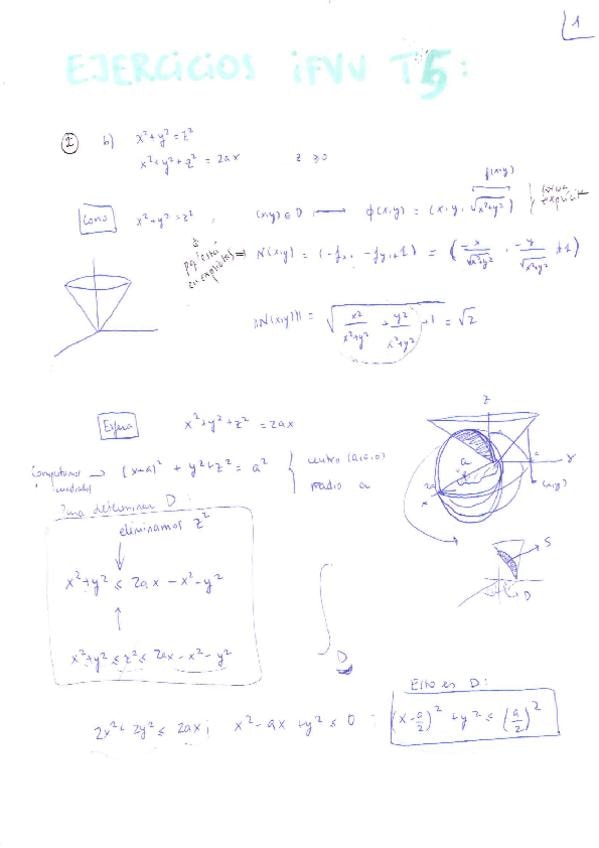 1
EJERCICIOS iFVV T5:
2 b) x²+y²=z²
x²+y²+z² = 2ax z ≥0
f(x,y)
Cono x²+y²=z², (x,y)∈D ⟼ φ(x,y) = (x,y, √x²+y²) forma explícita
N(x,y) = (-fx, -fy, +1) = (-x/√x²+y², -y/√x²+y², +1)
||N(x,y)|| = √(x²/(x²+y²) + y²/(x²+y²) + 1) = √2
Esfera x²+y²+z² = 2ax
Completamos cuadrados → (x-a)² + y²+z² = a² { centro (a,0,0)
radio a
Para determinar D:
eliminamos z²
x²+y² ≤ 2ax - x² - y²
x²+y² ≤ z² ≤ 2ax - x² - y²
z
a
y
2a
x
(x,y)
S
D
D
Esto es D:
2x²+2y² ≤ 2ax; x²-ax+y² ≤ 0 ; (x-a/2)² + y² ≤ (a/2)²